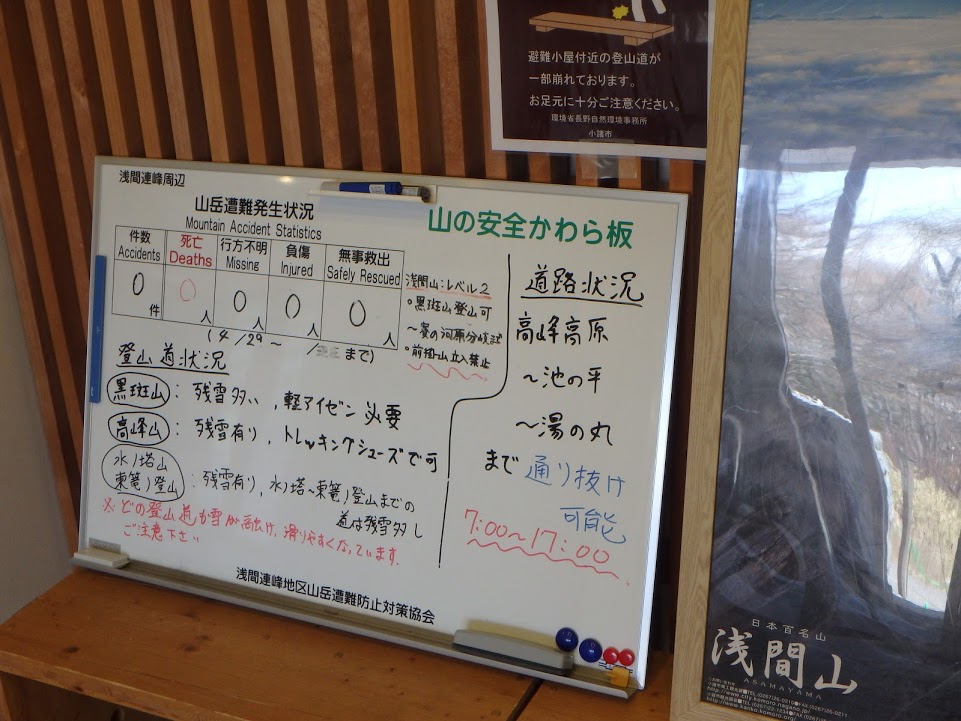 避難小屋付近の登山道が
一部崩れております。
お足元に十分ご注意ください。
環境省長野自然環境事務所
小諸市
浅間連峰周辺
山岳遭難発生状況
Mountain Accident Statistics
件数 死亡 行方不明 負傷 無事救出
Accidents Deaths Missing Injured Safely Rescued
0件 0 0人 0人 0人
(4/29～ / まで)
浅間山:レベル2
・黒斑山登山可
・前掛山立入禁止
登山道状況
黒斑山:残雪多い、軽アイゼン必要
高峰山:残雪有り、トレッキングシューズで可
水ノ塔山
東篭ノ登山:残雪有り、水ノ塔～東篭ノ登山までの
道は残雪多し
※どの登山道も雪が融け、滑りやすくなっています。
ご注意下さい
浅間連峰地区山岳遭難防止対策協会
山の安全かわら板
道路状況
高峰高原
～池の平
～湯の丸
まで通り抜け
可能
7:00～17:00
日本百名山
浅間山
ASAMAYAMA